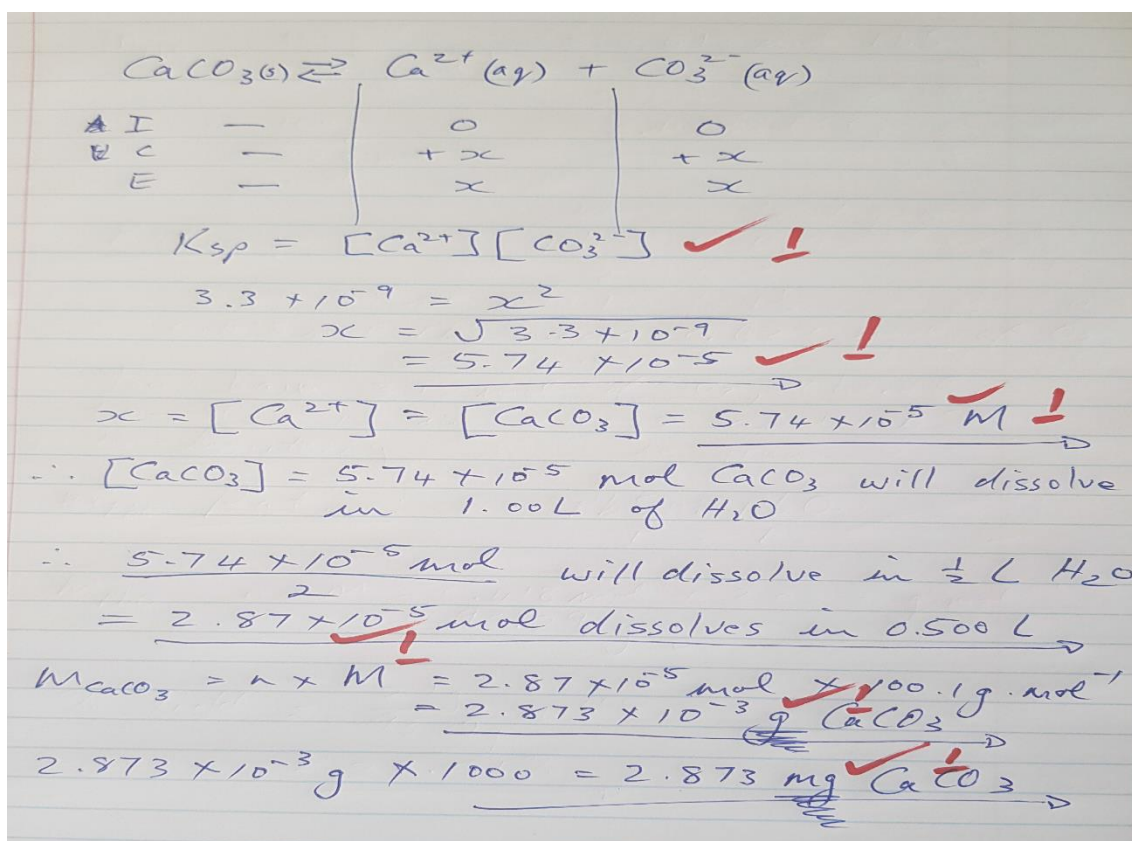 CaCO₃(s) ⇌ Ca²⁺(aq) + CO₃²⁻(aq)
I — 0 0
C — + x + x
E — x x
Ksp = [Ca²⁺][CO₃²⁻] ✓ 1
3.3 × 10⁻⁹ = x²
x = √3.3 × 10⁻⁹
= 5.74 × 10⁻⁵ ✓ 1
x = [Ca²⁺] = [CaCO₃] = 5.74 × 10⁻⁵ M ✓ 1
∴ [CaCO₃] = 5.74 × 10⁻⁵ mol CaCO₃ will dissolve
in 1.00L of H₂O
∴ 5.74 × 10⁻⁵ mol / 2 will dissolve in ½ L H₂O
= 2.87 × 10⁻⁵ mol dissolves in 0.500 L ✓ 1
mCaCO₃ = n × M = 2.87 × 10⁻⁵ mol × 100.1 g.mol⁻¹
= 2.873 × 10⁻³ g CaCO₃ ✓ 1
2.873 × 10⁻³ g × 1000 = 2.873 mg CaCO₃ ✓ 1